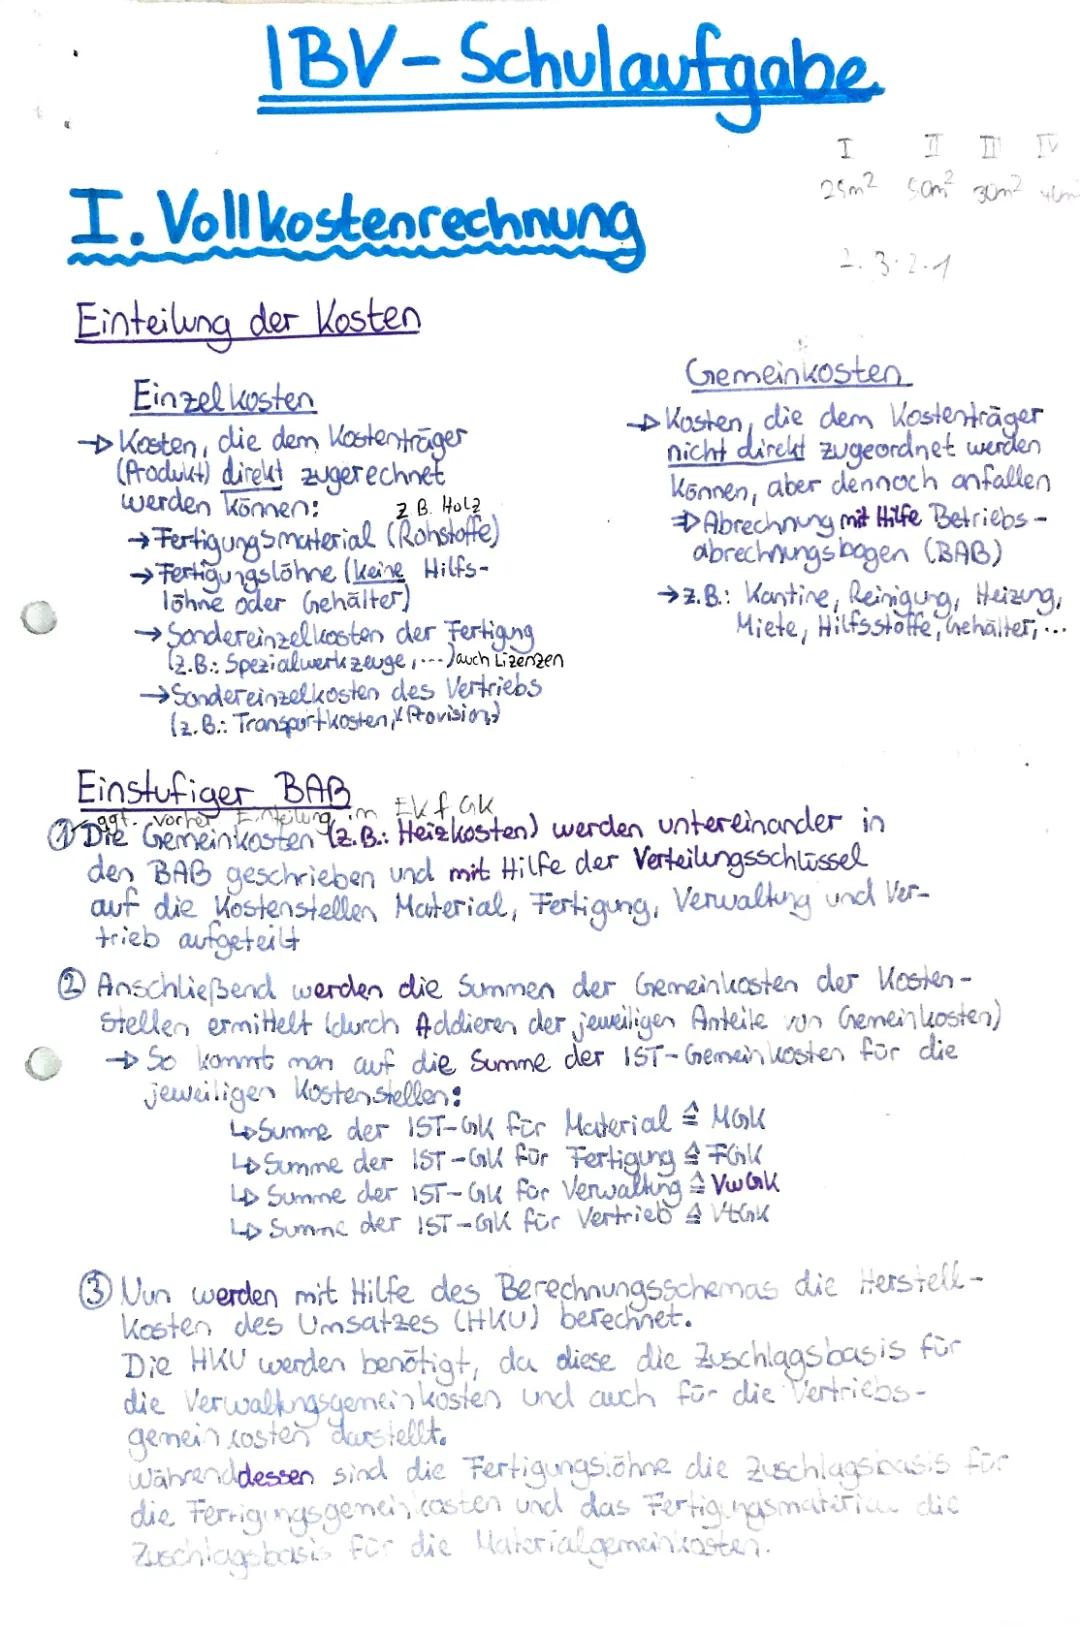 IBV-Schulaufgabe
I II III IV
25m² 50m² 30m²
I. Vollkostenrechnung
2.3.2.1
Einteilung der Kosten
Einzelkosten
→ Kosten, die dem Kostenträger
(Produkt) direkt zugerechnet
werden können:
z.B. Holz
→ Fertigungsmaterial (Rohstoffe)
→ Fertigungslöhne (keine Hilfs-
löhne oder Gehälter)
→ Sondereinzelkosten der Fertigung
(z.B.: Spezialwerkzeuge,...) auch Lizenzen
→ Sondereinzelkosten des Vertriebs
(z.B.: Transportkosten, Provision)
Gemeinkosten
→ Kosten, die dem Kostenträger
nicht direkt zugeordnet werden
können, aber dennoch anfallen
⇒ Abrechnung mit Hilfe Betriebs-
abrechnungsbogen (BAB)
→ z.B.: Kantine, Reinigung, Heizung,
Miete, Hilfsstoffe, Gehälter,...
Einstufiger BAB
ggf. vorher Einteilung in EK & GK
① Die Gemeinkosten (z.B.: Heizkosten) werden untereinander in
den BAB geschrieben und mit Hilfe der Verteilungsschlüssel
auf die Kostenstellen Material, Fertigung, Verwaltung und Ver-
trieb aufgeteilt
② Anschließend werden die Summen der Gemeinkosten der Kosten-
stellen ermittelt (durch Addieren der jeweiligen Anteile von Gemeinkosten)
→ So kommt man auf die Summe der IST-Gemeinkosten für die
jeweiligen Kostenstellen:
↳ Summe der IST-GK für Material ≙ MGK
↳ Summe der IST-GK für Fertigung ≙ FGK
↳ Summe der IST-GK für Verwaltung ≙ VwGK
↳ Summe der IST-GK für Vertrieb ≙ VtGK
③ Nun werden mit Hilfe des Berechnungsschemas die Herstell-
kosten des Umsatzes (HKU) berechnet.
Die HKU werden benötigt, da diese die Zuschlagsbasis für
die Verwaltungsgemeinkosten und auch für die Vertriebs-
gemeinkosten darstellt.
Währenddessen sind die Fertigungslöhne die Zuschlagsbasis für
die Fertigungsgemeinkosten und das Fertigungsmaterial die
Zuschlagsbasis für die Materialgemeinkosten.